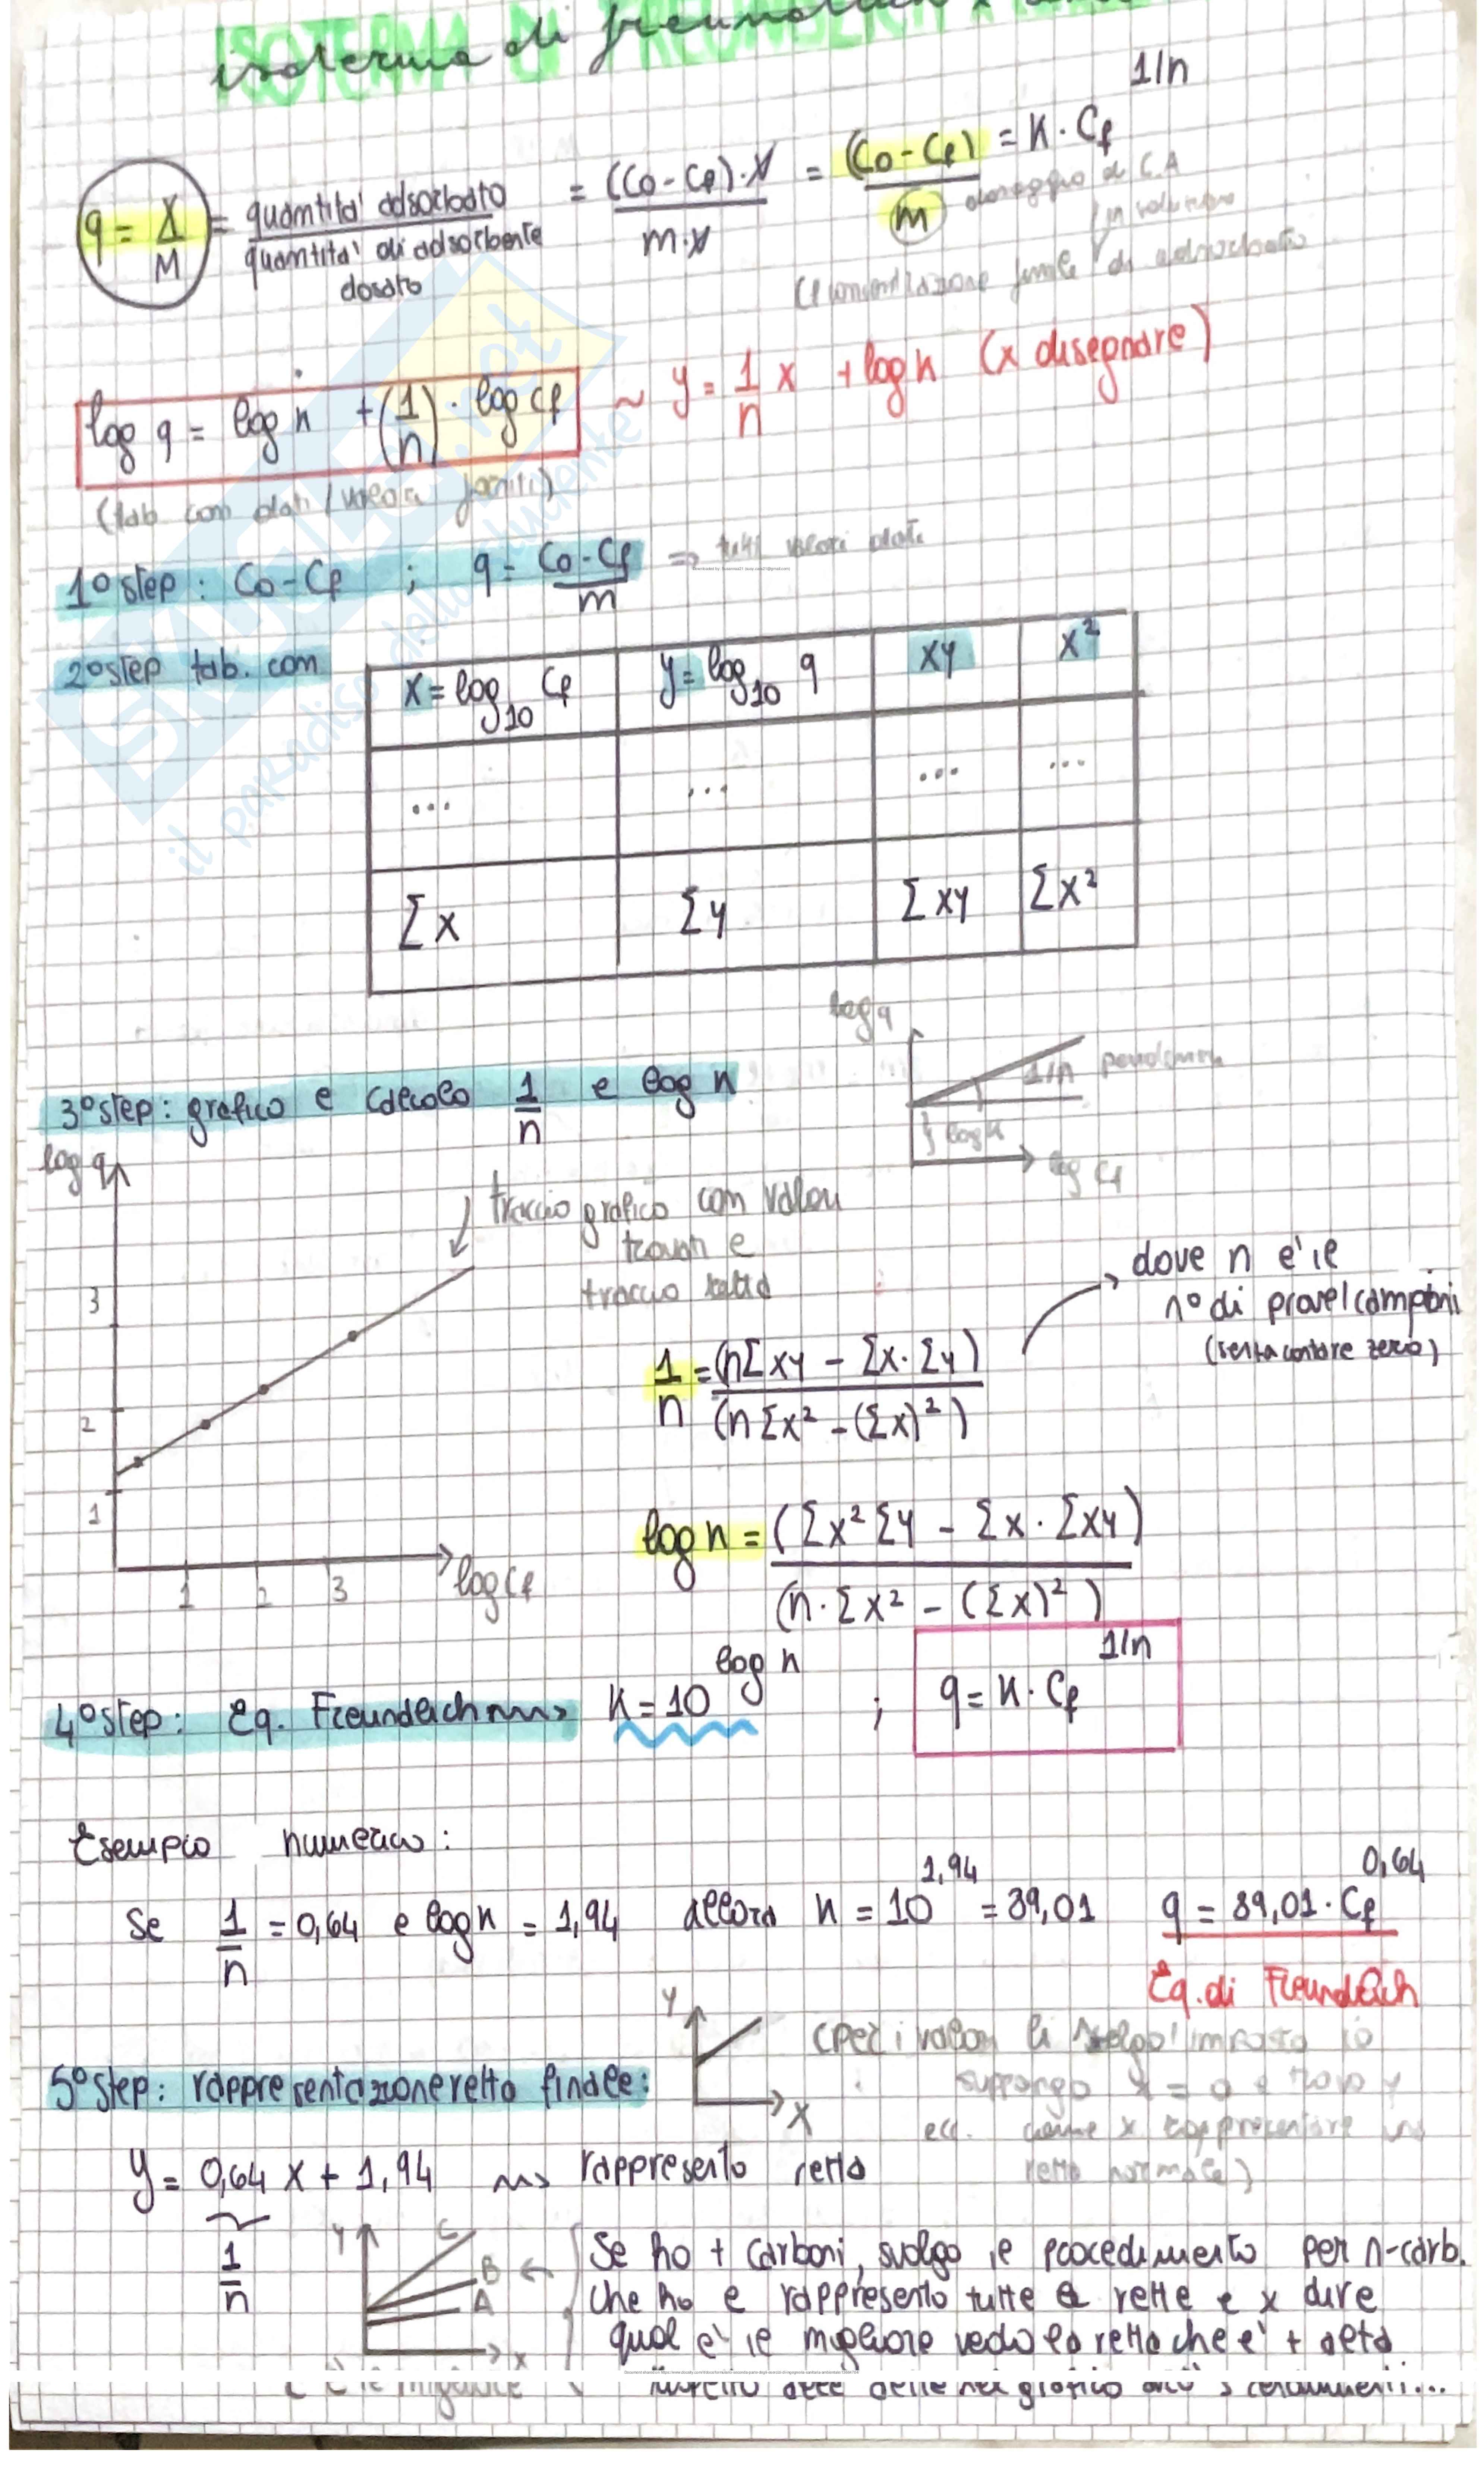 ISOTERMA DI FREUNDLICH x
isoterma di freundlich x
q = X/M = quantita' adsorbato / quantita' di adsorbente dosato = ((Co-Cf)·V)/(m·V) = (Co-Cf)/m = K·Cf^1/n
dosaggio di C.A
in volume
Cf concentrazione finale di adsorbato
log q = log K + (1/n) · log Cf ~ y = 1/n x + log K (x disegnare)
(tab con dati / valori forniti)
1° step: Co-Cf ; q = (Co-Cf)/m => tutti valori dati
2° step tab. con
x = log10 Cf y = log10 q xy x²
... ... ... ...
Σx Σy Σxy Σx²
log q
1/n pendenza
} log K
log Cf
3° step: grafico e calcolo 1/n e log K
log q
traccio grafico con valori
trovati e
traccio retta
3
2
1
1 2 3 log Cf
dove n e' il
n° di prove/campioni
(senza contare zero)
1/n = (nΣxy - Σx·Σy)/(nΣx² - (Σx)²)
log K = (Σx²Σy - Σx·Σxy)/(n·Σx² - (Σx)²)
4° step: Eq. Freundlich ~~> K = 10^log K ; q = K·Cf^1/n
Esempio numerico:
Se 1/n = 0,64 e log K = 1,94 allora K = 10^1,94 = 89,01 q = 89,01·Cf^0,64
Eq. di Freundlich
5° step: rappresentazione retta finale:
Y
X
(per i valori li scelgo/imposto io
suppongo x = 0 e trovo y
ecc. come x rappresentare una
retta normale)
y = 0,64 x + 1,94 ~~> rappresento retta
1/n
Y C B A x
Se ho + carboni, svolgo il procedimento per n-carb.
che ho e rappresento tutte le rette e x dire
qual e' il migliore vedo la retta che e' + alta
C è il migliore
rispetto alle altre nel grafico
SKUOLA.net
il paradiso dello studente